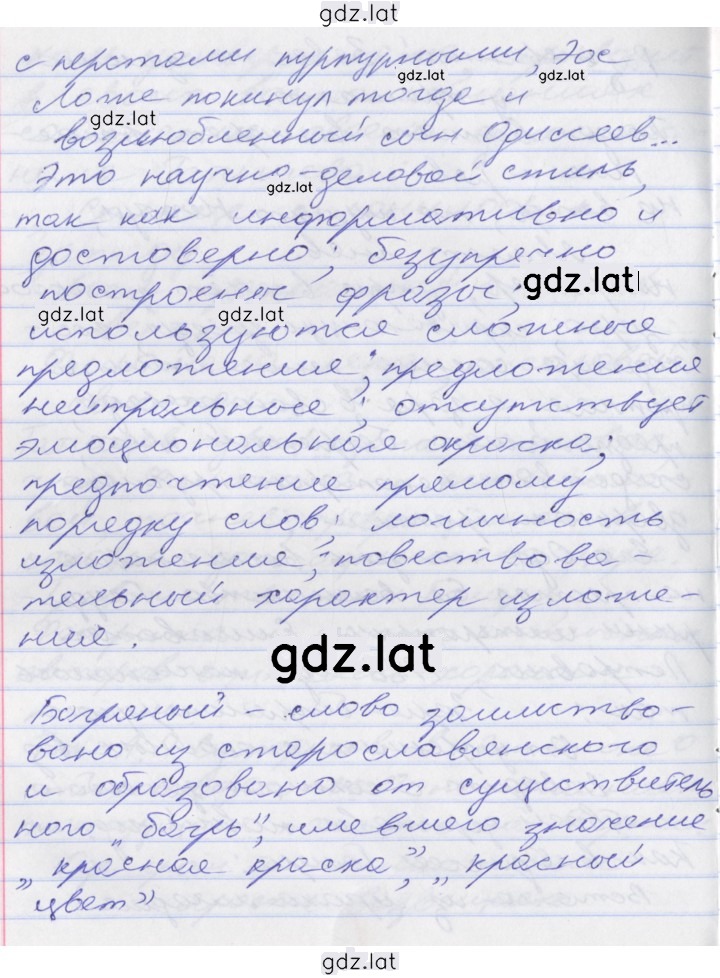 gdz.lat
с перстами пурпурными Эос
gdz.lat gdz.lat
Ложе покинул тогда и
gdz.lat
возлюбленный сын Одиссеев...
Это научно-деловой стиль,
gdz.lat
так как информативно и
достоверно; безупречно
gdz.lat
построены фразы;
gdz.lat gdz.lat
используются сложные
предложения; предложения
нейтральные; отсутствует
эмоциональная окраска;
предпочтение прямому
порядку слов; логичность
изложения; повествова-
тельный характер изложе-
ния.
gdz.lat
Багряный - слово заимство-
вано из старославянского
и образовано от существитель
ного „багрь", имевшего значение
„красная краска", „красный
цвет"
gdz.lat